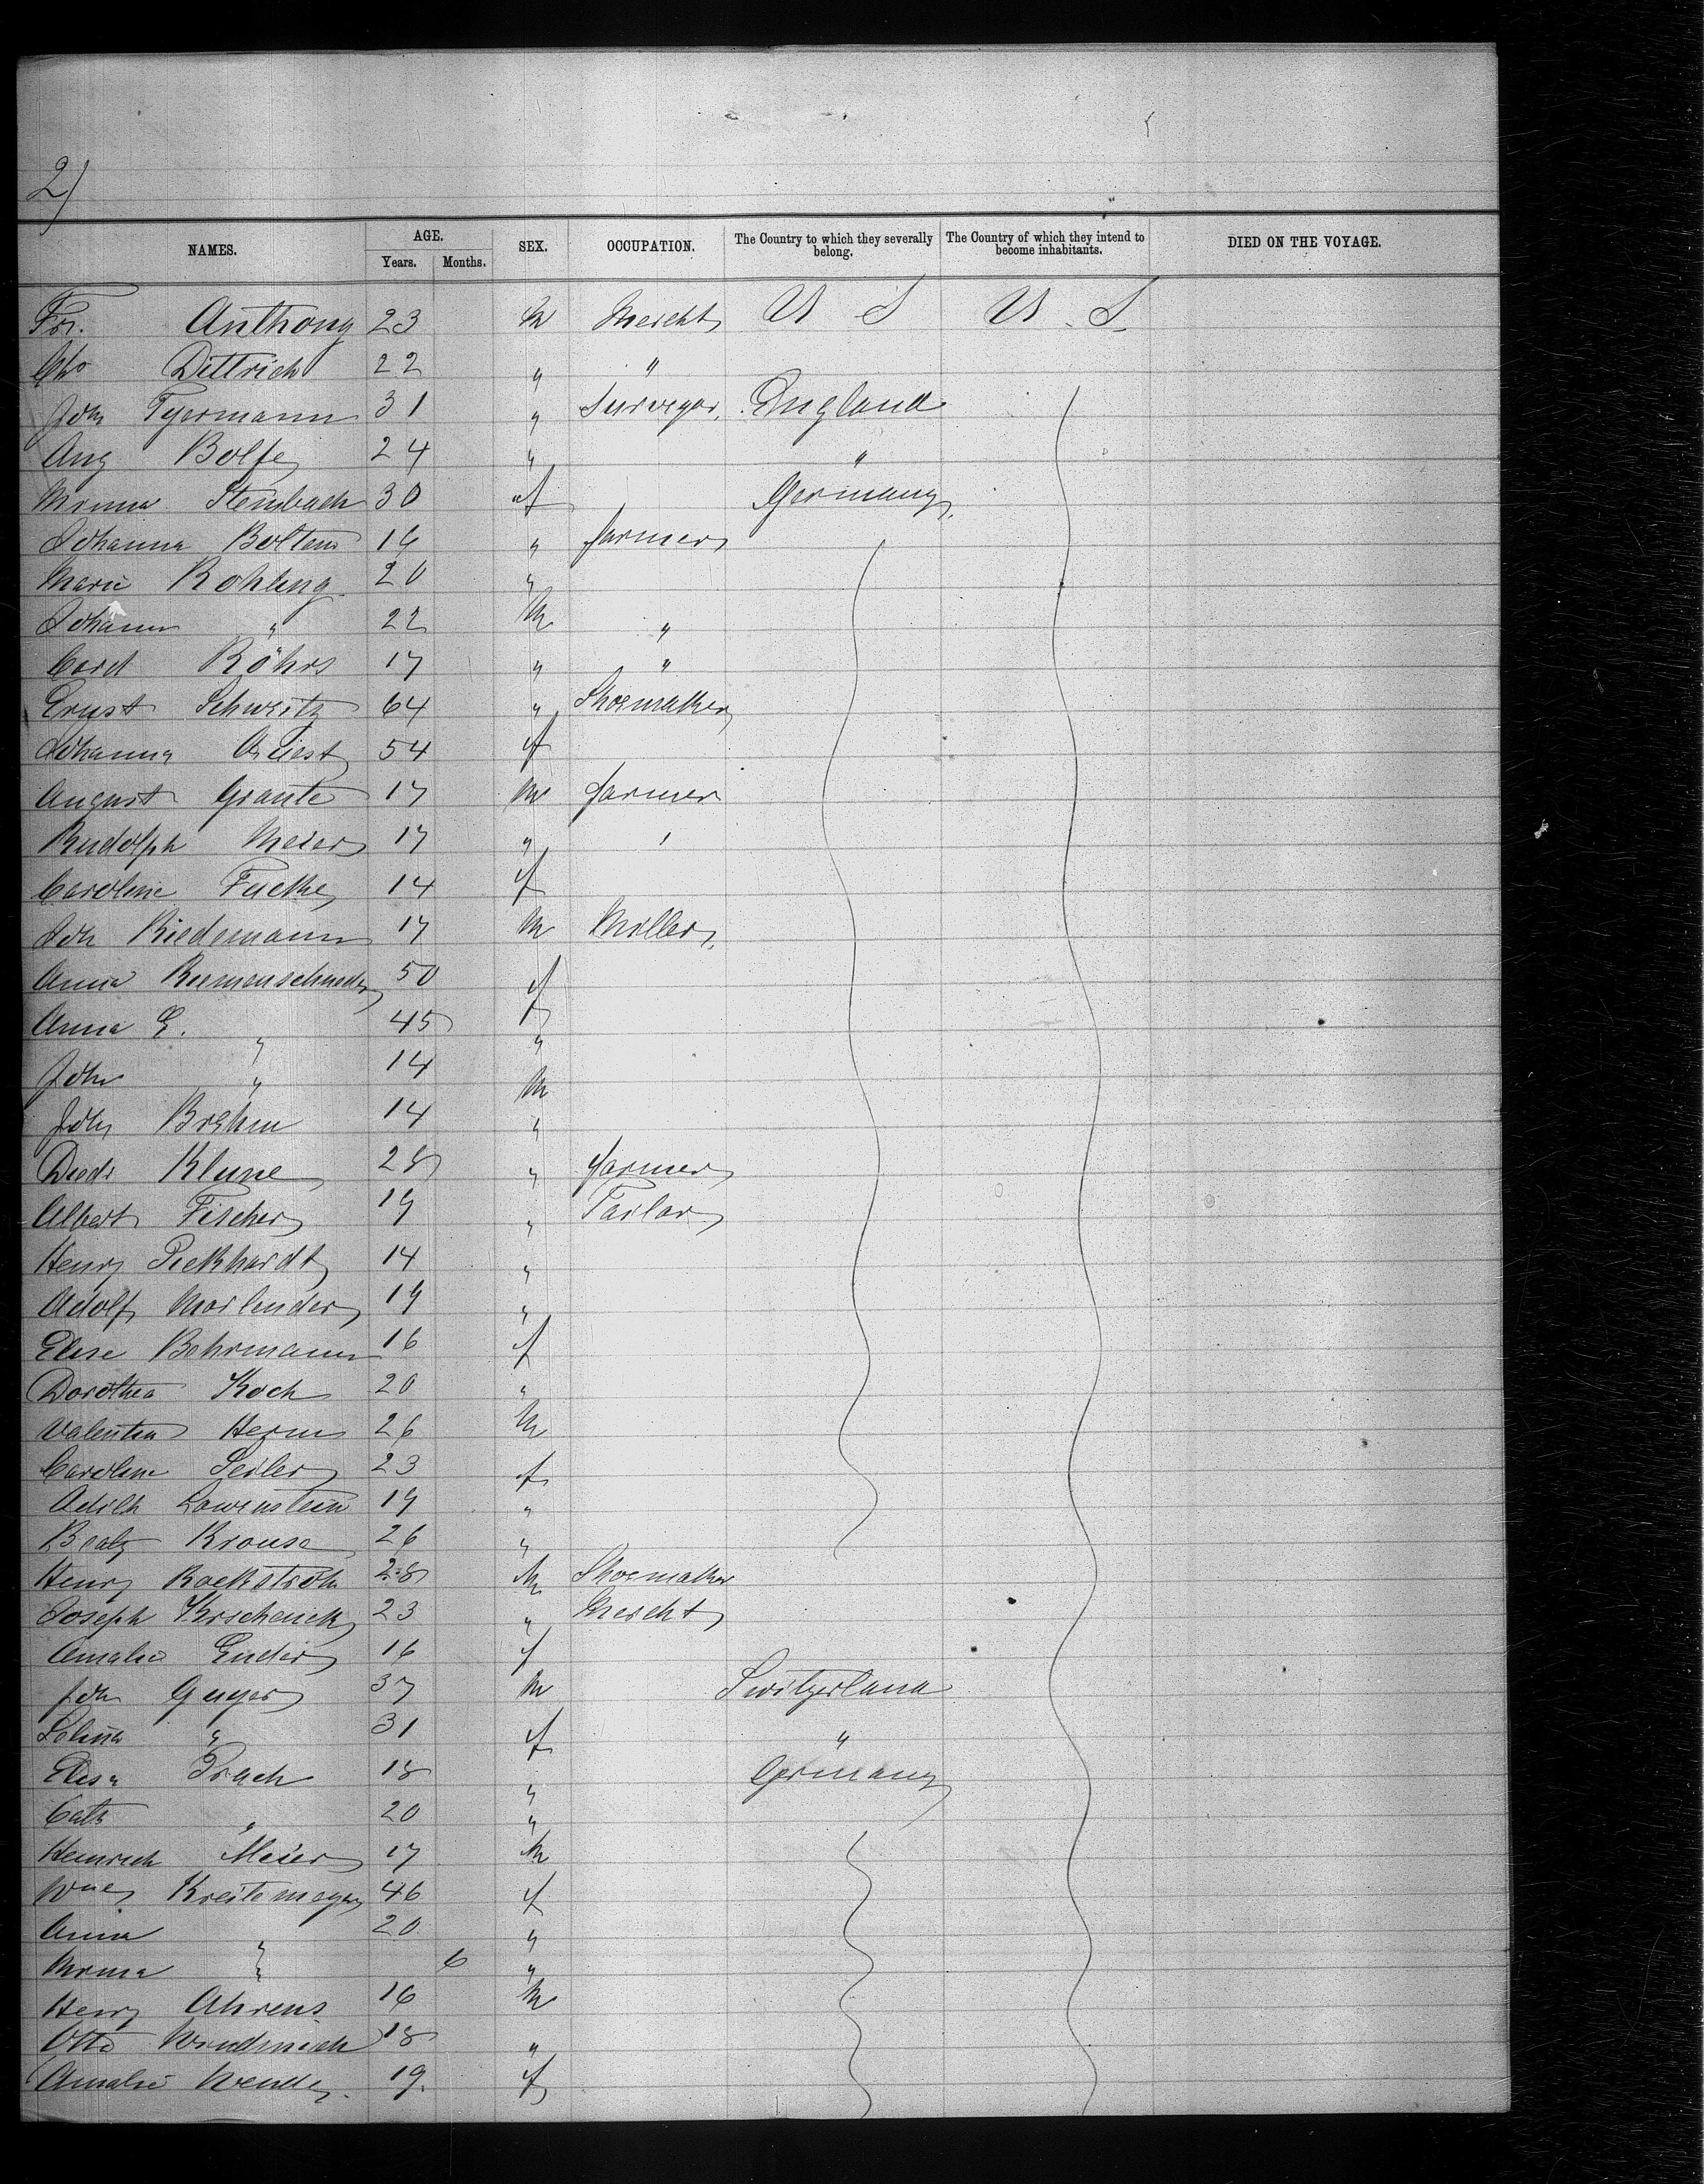 2)
NAMES. AGE. SEX. OCCUPATION. The Country to which they severally belong. The Country of which they intend to become inhabitants. DIED ON THE VOYAGE.
Years. Months.
Fr. Anthony 23 M Mercht U S U. S.
Dittrich 22 " "
John Tyermann 31 " Surveyor. England
Aug Bolfe 24 " "
Minna Steinbach 30 f Germany
Johanna 19 " farmer
Marie Rohling 20 "
Johann " 22 M "
Cord Röhrs 17 " "
Ernst Schweitz 64 " Shoemaker
Johanna 54 f
August Grante 17 M farmer
Rudolph Meier 17 " "
Caroline Fucke 14 f
Joh Riedemann 17 M Miller
Anna Riemenschneider 50 f
Anna E. " 45 "
John " 14 M
John Brehm 14 "
Diedr Klune 28 " farmer
Albert Fischer 19 " Tailor
Henry Piekhardt 14 "
Adolf Morlender 19 "
Elise Bohrmann 16 f
Dorothea Koch 20 "
Valentin Herm 26 M
Caroline Seiler 23 f
Lowenstein 19 "
Krouse 26 "
Henry Rockstroh 28 M Shoemaker
Joseph 23 " Mercht
Amalie Ender 16 f
John Geyer 37 M Switzerland
" 31 f "
Elisa Prach 18 " Germany
Cath " 20 "
Heinrich Meier 17 M
Kreitemeyer 46 f
Anna " 20 "
Minna " 6 "
Henry Ahrens 16 M
Otto 18 "
Amalie Wende 19. f